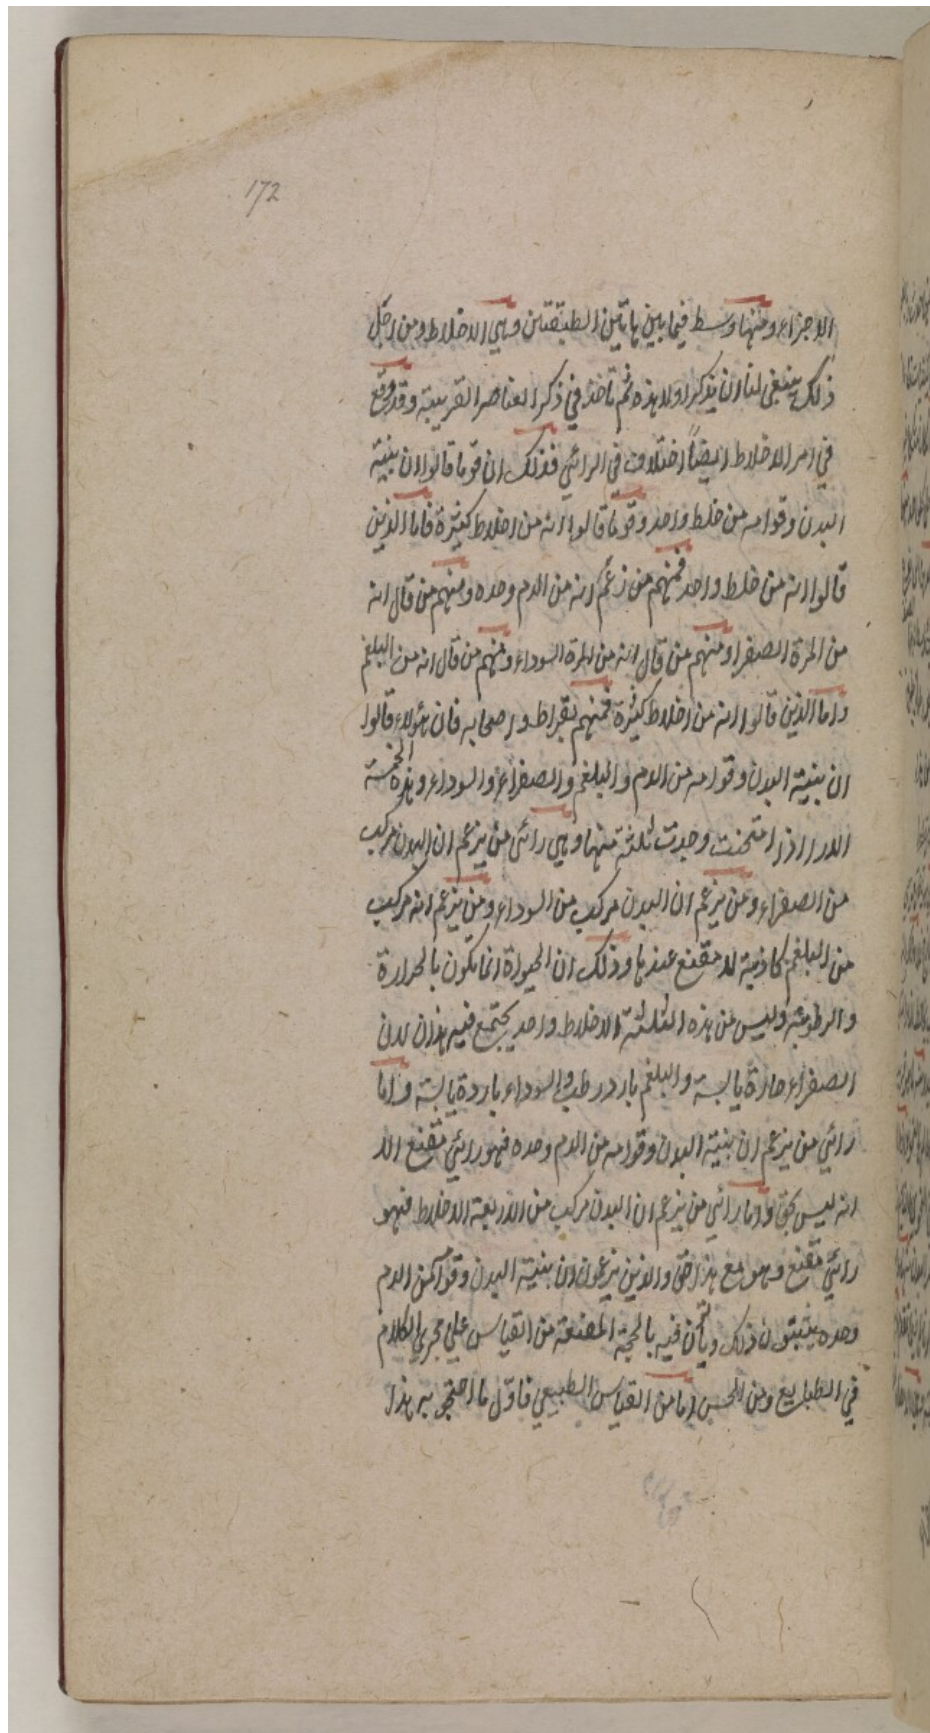 172
الاجزاء ومنها وسط فيما بين هاتين الطبقتين وهي الاخلاط ومن اجل
ذلك ينبغي لنا ان يذكر اولا هذه ثم ناخذ في ذكر العناصر القريبة وقد وقع
في امر الاخلاط ايضا اختلاف في الرائي فذلك ان قوما قالوا ان بنية
البدن وقوامه من خلط واحد وقوما قالوا انه من اخلاط كثيرة فاما الذين
قالوا انه من خلط واحد فمنهم من زعم انه من الدم وحده ومنهم من قال انه
من المرة الصفرا ومنهم من قال انه من المرة السوداء ومنهم من قال انه من البلغم
واما الذين قالوا انه من اخلاط كثيرة فمنهم بقراط واصحابه فان هؤلاء قالوا
ان بنية البدن وقوامه من الدم والبلغم والصفراء والسوداء وهذه الخمسة
الارا اذا امتحنت وجدت ثلثة منها وهي رائى من يزعم ان البدن مركب
من الصفراء ومن يزعم ان البدن مركب من السوداء ومن يزعم انه مركب
من البلغم كاذبة لا مقنع عندها وذلك ان الحيوة انما تكون بالحرارة
والرطوبة وليس من هذه الثلثة الاخلاط واحد يجتمع فيه هذان لان
الصفراء حارة يابسة والبلغم بارد رطب والسوداء باردة يابسة واما
رائي من يزعم ان بنية البدن وقوامه من الدم وحده فهو رائي مقنع الا
انه ليس بحق واما رائي من يزعم ان البدن مركب من الاربعة الاخلاط فهو
رائي مقنع وهو مع هذا حق والذين يزعمون ان بنية البدن وقوامه من الدم
وحده يثبتون ذلك وياتن فيه بالحجة المقنعة من القياس علي مجري الكلام
في الطبايع ومن الحس اما من القياس الطبيعي فاول ما احتج به هذا